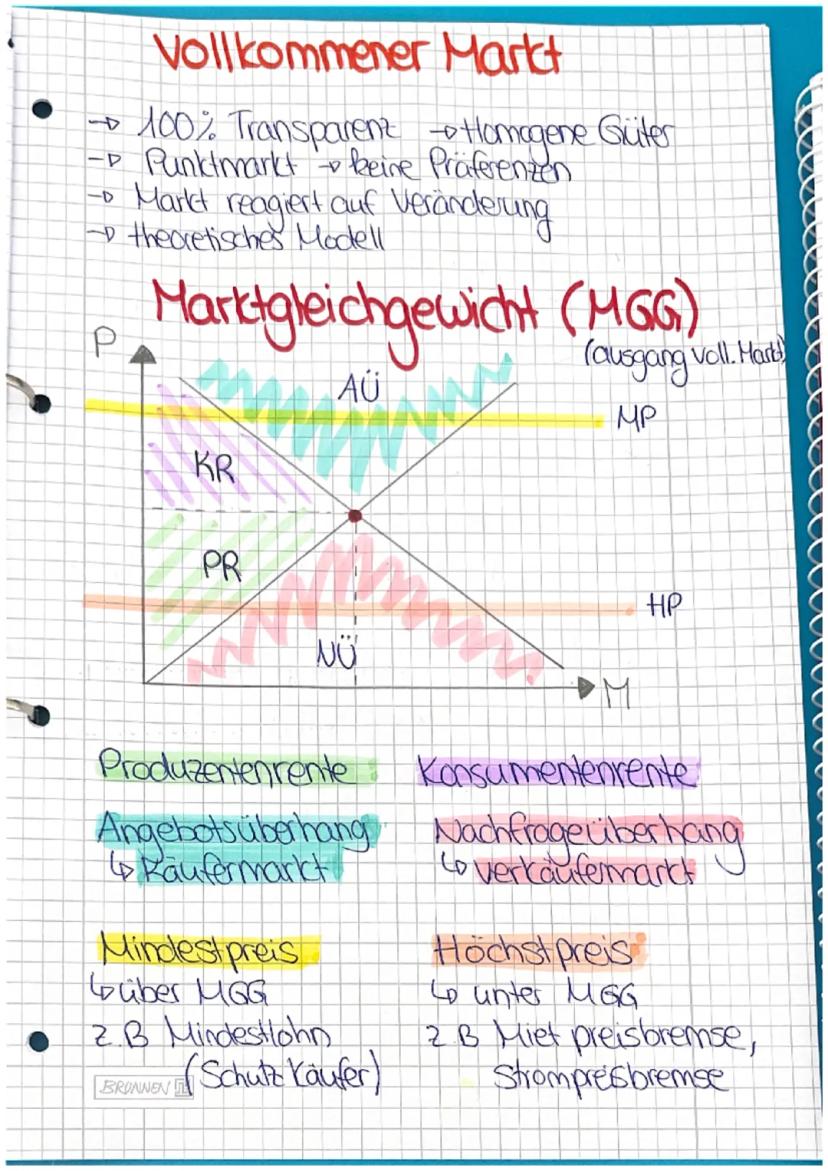 Vollkommener Markt
→ 100% Transparenz → Homogene Güter
→ Punktmarkt → keine Präferenzen
→ Markt reagiert auf Veränderung
→ theoretisches Modell
Marktgleichgewicht (MGG)
(ausgang voll. Markt)
P
AÜ
MP
KR
PR
HP
NÜ
M
Produzentenrente Konsumentenrente
Angebotsüberhang Nachfrageüberhang
↳ Käufermarkt ↳ Verkäufermarkt
Mindestpreis Höchstpreis
↳ über MGG ↳ unter MGG
z.B Mindestlohn z.B Mietpreisbremse,
(Schutz Käufer) Strompreisbremse
BRUNNEN